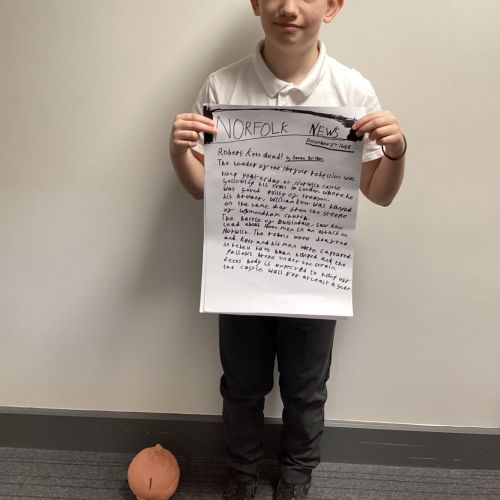 NORFOLK NEWS
December 8th 1549
Robert Kett dead! by
The Leader of the Norfolk Rebellion was
hung yesterday at Norwich Castle
following his trial in London where he
was found guilty of treason.
his brother, William Kett was hanged
on the same day from the steeple
of Wymondham church.
The battle of Dussindale, saw Kett
Lead about men in an attack on
Norwich. The rebels were
and Kett and his men were captured.
rebels have been hanged and the
gallows broke under the strain.
Ketts body is expected to hang off
the castle wall for at least a year.